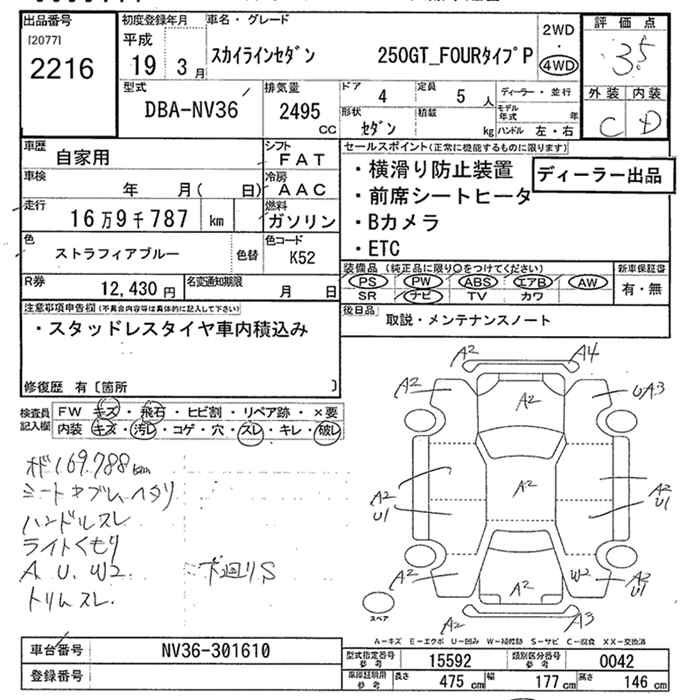 出品番号
[2077]
2216
初度登録年月
平成
19 3月
車名・グレード
スカイラインセダン 250GT_FOURタイプP
2WD
4WD
評価点
3.5
外装 内装
C D
型式
DBA-NV36
排気量
2495 CC
ドア 4
定員 5人
形状 セダン
積載 kg
ディーラー・並行
モデル年式 年
ハンドル 左・右
車歴
自家用
シフト
FAT
車検
年 月( 日)
冷房
AAC
走行
16万9千787 km
燃料
ガソリン
色
ストラフィアブルー
色替
色コード
K52
R券
12,430円
名変通知期限
月 日
セールスポイント(正常に機能するものに限ります)
・横滑り防止装置
・前席シートヒータ
・Bカメラ
・ETC
ディーラー出品
装備品(純正品に限り○をつけてください)
PS PW ABS エアB AW
SR ナビ TV カワ
新車保証書
有・無
後日品
取説・メンテナンスノート
注意事項申告欄(不具合内容等は具体的に記入して下さい)
・スタッドレスタイヤ車内積込み
修復歴 有〔箇所 〕
検査員記入欄
FW キズ・飛石・ヒビ割・リペア跡・×要
内装 キズ・汚レ・コゲ・穴・スレ・キレ・破レ
169.788km
ハンドルスレ
ライトくもり
A. U. W2.
下廻りS
トリムスレ.
A2 A4
A2 A2 UA3
A2 U1 A2 A2 U1
A2 A2 W2 A2 U1
A2 A3
スペア
A-キズ E-エクボ U-凹み W-補修跡 S-サビ C-腐食 XX-交換済
車台番号
NV36-301610
登録番号
型式指定番号 参考 15592
類別区分番号 参考 0042
車庫証明用 参考 長さ 475cm 幅 177cm 高さ 146cm